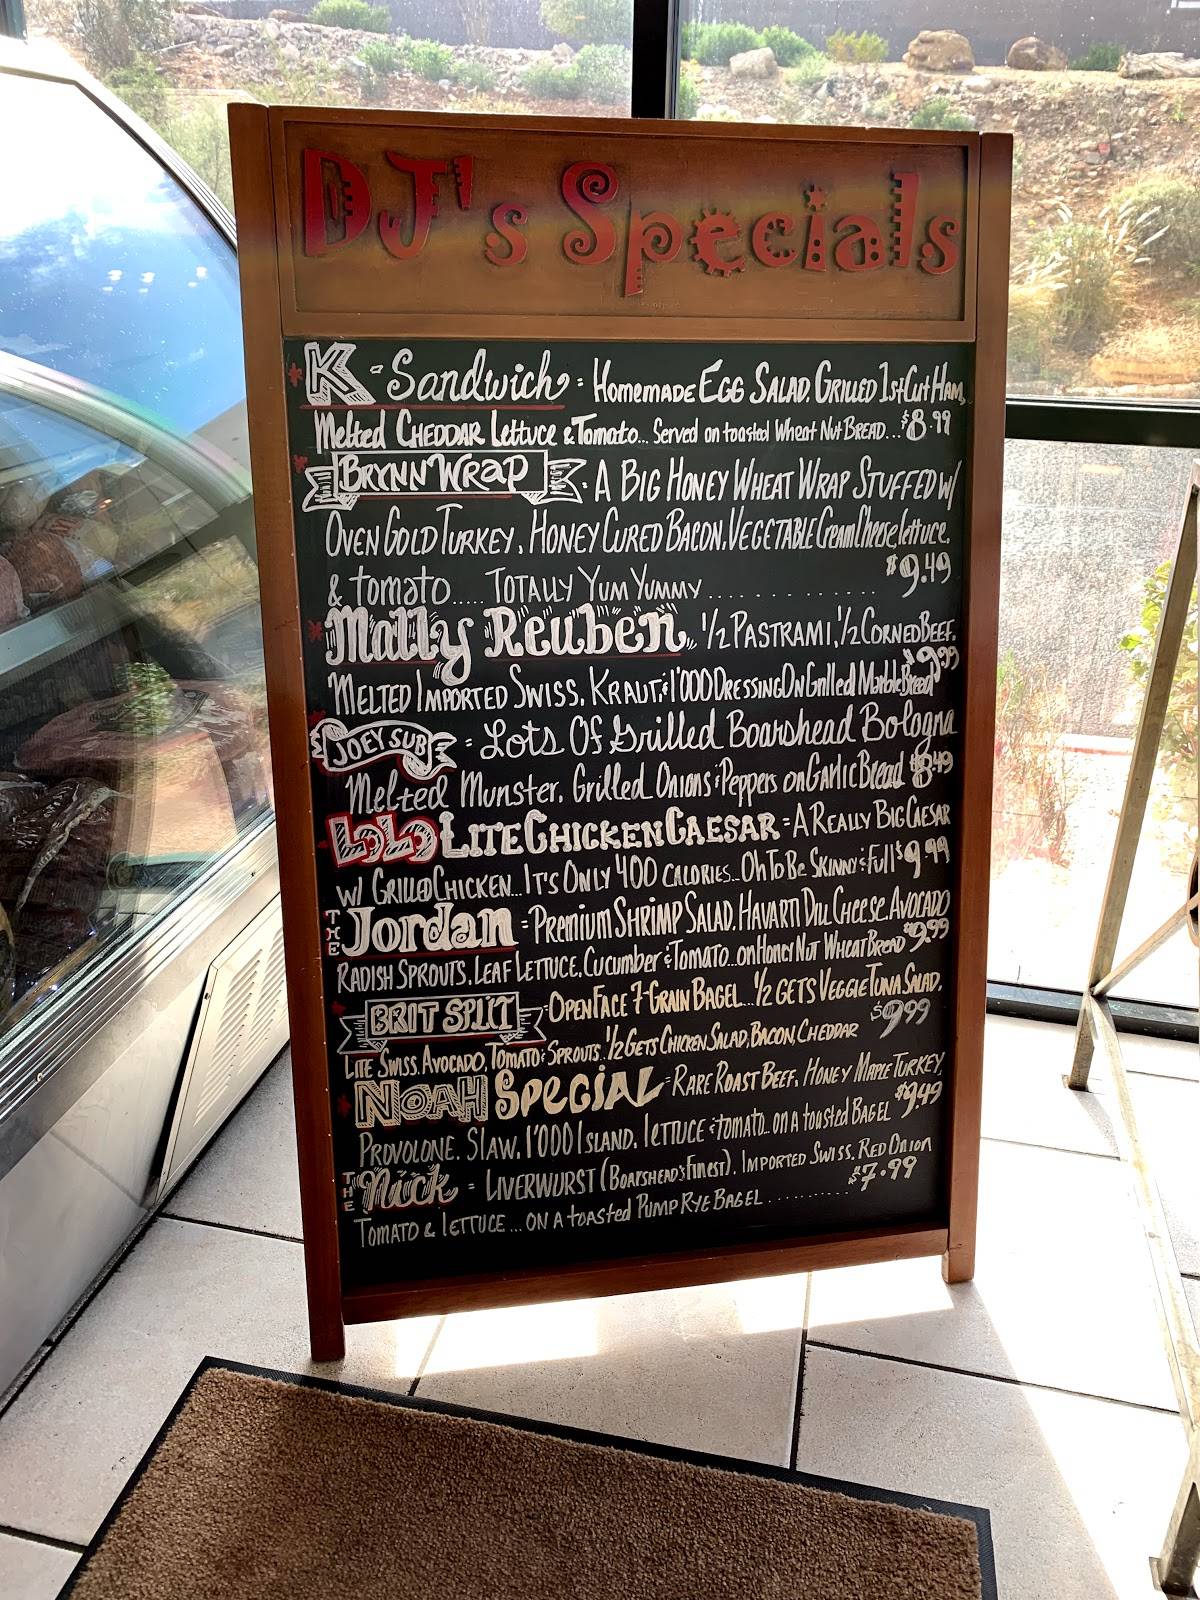 DJ's Specials
K - Sandwich = Homemade Egg Salad. Grilled 1st Cut Ham,
Melted Cheddar Lettuce & Tomato... Served on toasted Wheat Nut Bread... $8.99
Brynn Wrap - A Big Honey Wheat Wrap Stuffed w/
Oven Gold Turkey, Honey Cured Bacon, Vegetable Cream Cheese, lettuce,
& tomato..... Totally Yum Yummy .............. $9.49
Mally Reuben, 1/2 Pastrami, 1/2 Corned Beef,
Melted Imported Swiss, Kraut & 1'000 Dressing On Grilled Marble Bread $9.99
Joey Sub = Lots Of Grilled Boarshead Bologna
Melted Munster, Grilled Onions & Peppers on Garlic Bread $8.49
LoLo Lite Chicken Caesar = A Really Big Caesar
w/ Grilled Chicken... It's Only 400 calories... Oh To Be Skinny & Full $9.99
The Jordan = Premium Shrimp Salad, Havarti Dill Cheese, Avocado
Radish Sprouts, Leaf Lettuce, Cucumber & Tomato... on Honey Nut Wheat Bread $9.99
Brit Split - Open Face 7-Grain Bagel... 1/2 gets Veggie Tuna Salad,
Lite Swiss, Avocado, Tomato & Sprouts.. 1/2 Gets Chicken Salad, Bacon, Cheddar $9.99
Noah Special = Rare Roast Beef, Honey Maple Turkey,
Provolone, Slaw, 1'000 Island, lettuce & tomato... on a toasted Bagel $9.49
The Nick = Liverwurst (Boarshead's Finest), Imported Swiss, Red Onion
Tomato & lettuce ... on a toasted Pump Rye Bagel .......... $7.99